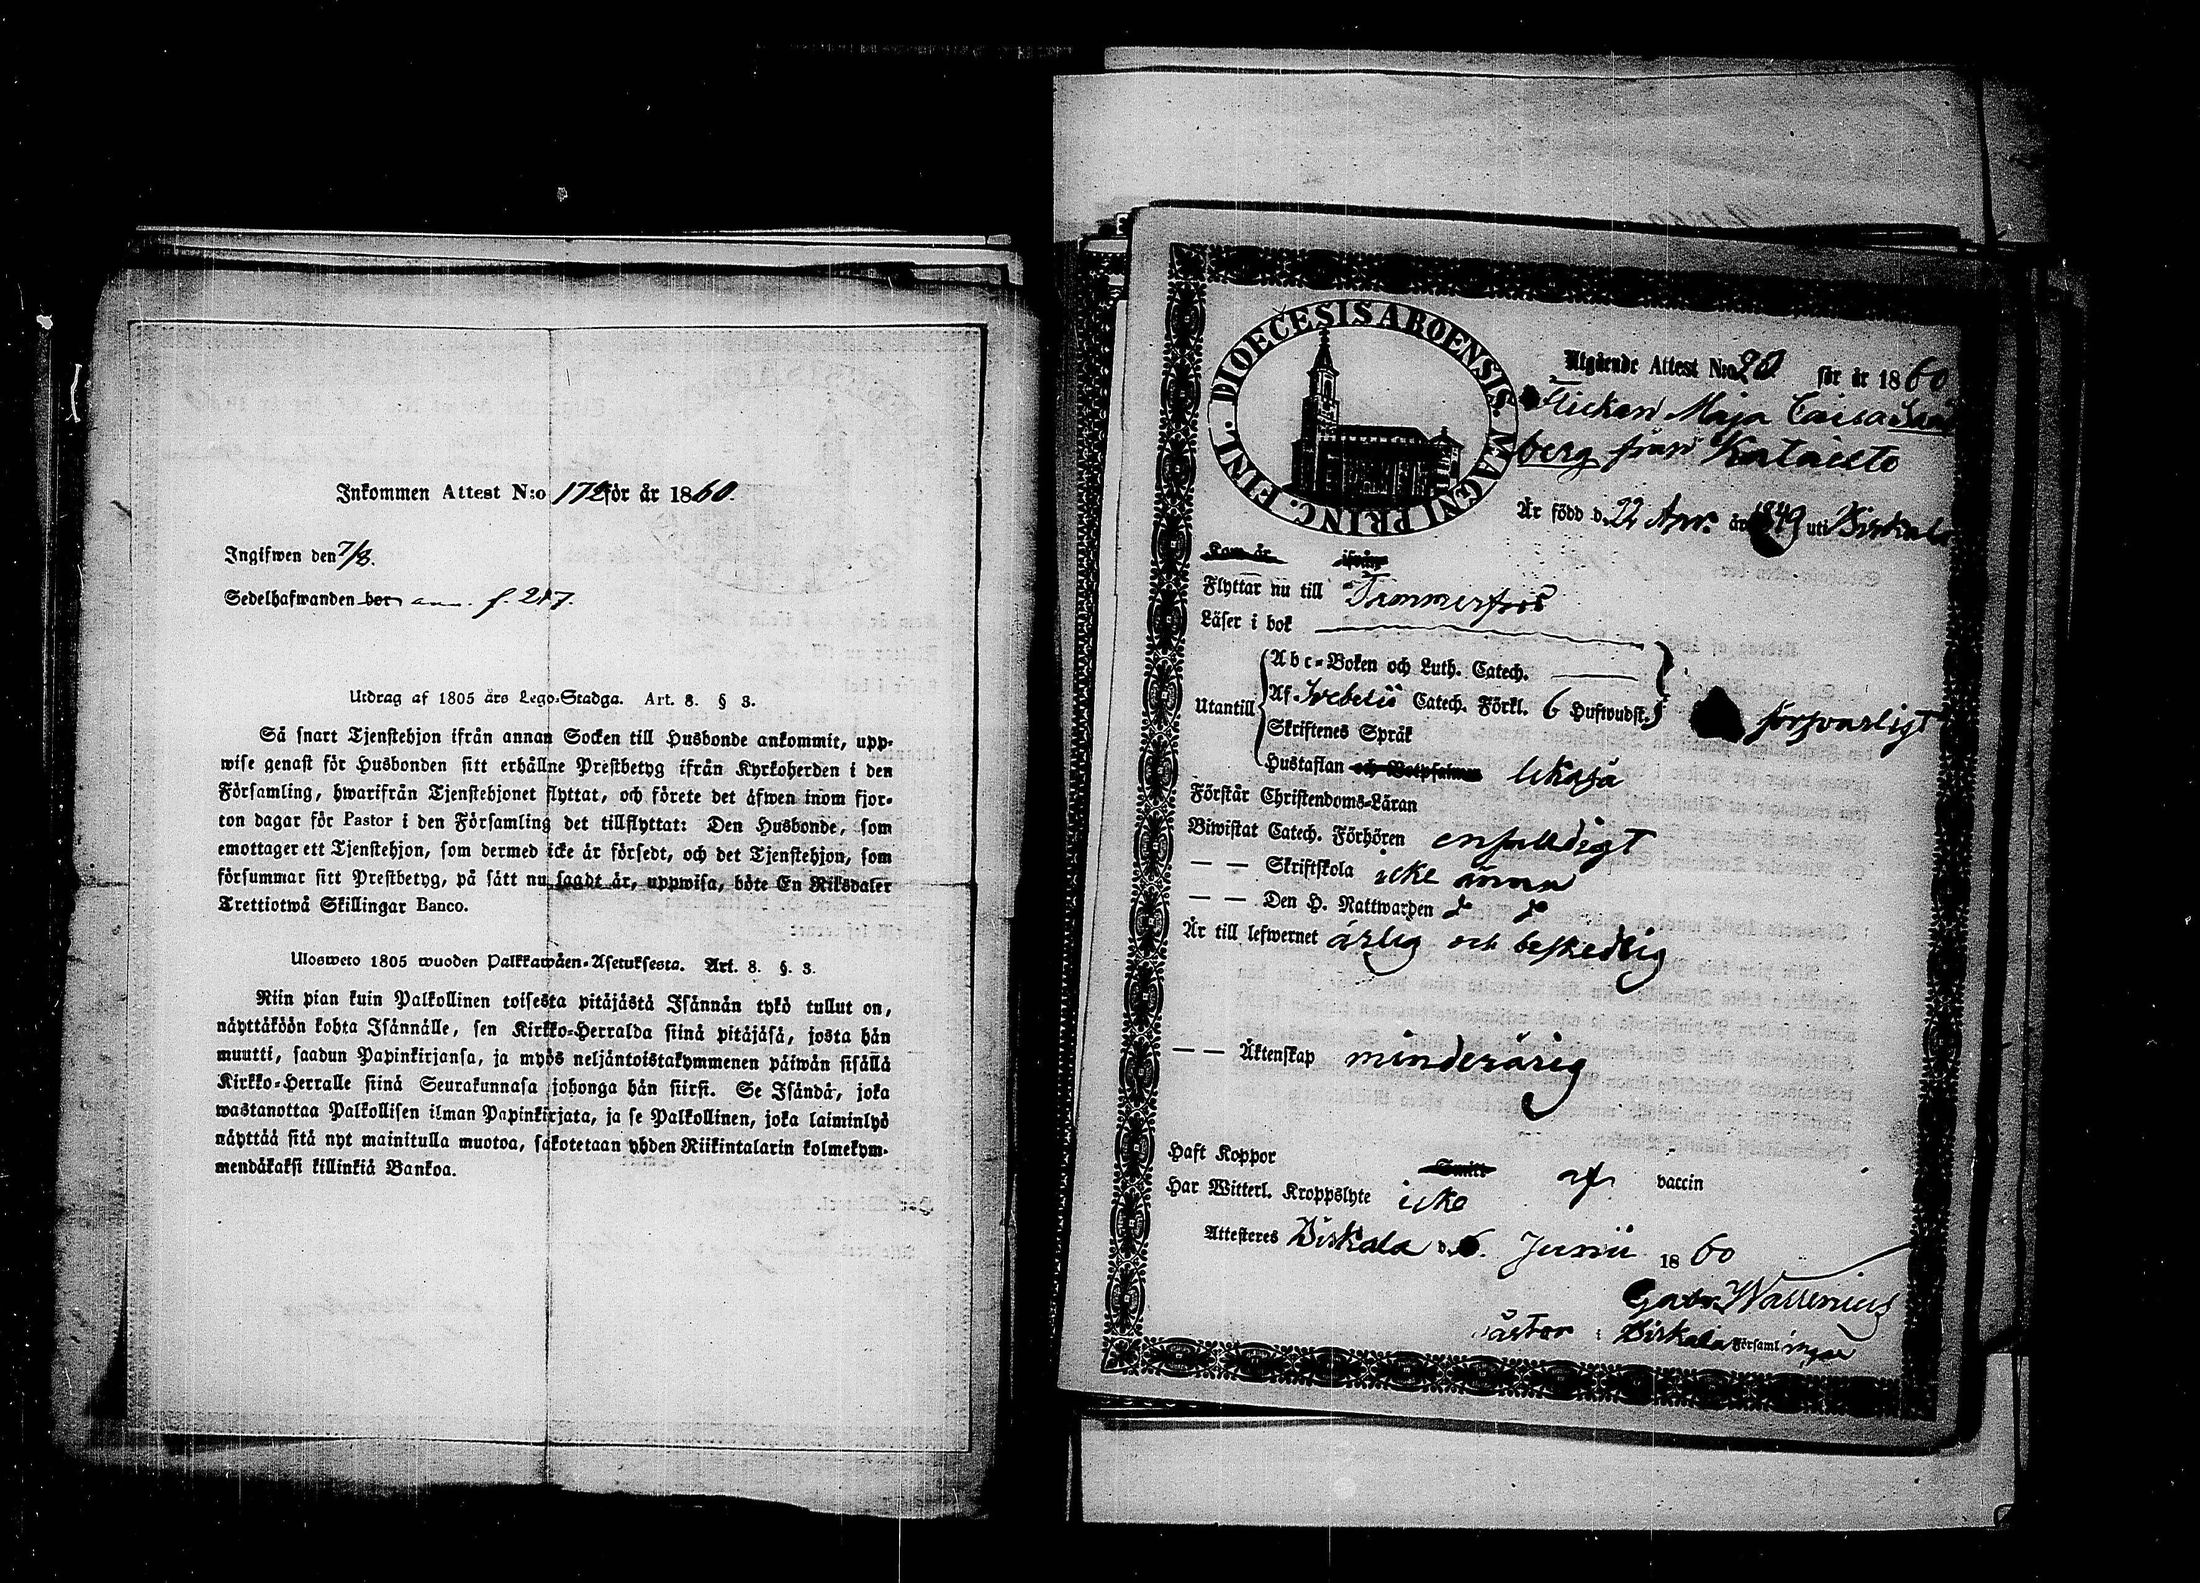 Inkommen Attest N:o 172 för år 1860.
Ingifwen den 7/8.
Sedelhafwanden bor ann. f. 217.
Utdrag af 1805 års Lego-Stadga. Art. 8. § 3.
Så snart Tjenstehjon ifrån annan Socken till Husbonde ankommit, upp-
wise genast för Husbonden sitt erhållne Prestbetyg ifrån Kyrkoherden i den
Församling, hwarifrån Tjenstehjonet flyttat, och förete det äfwen inom fjor-
ton dagar för Pastor i den Församling det tillflyttat: Den Husbonde, som
emottager ett Tjenstehjon, som dermed icke är försedt, och det Tjenstehjon, som
försummar sitt Prestbetyg, på sätt nu sagdt är, uppwisa, böte En Riksdaler
Trettiotwå Skillingar Banco.
Ulosweto 1805 wuoden Palkkawäen-Asetuksesta. Art. 8. §. 3.
Niin pian kuin Palkollinen toisesta pitäjästä Isännän tykö tullut on,
näyttäköön kohta Isännälle, sen Kirkko-Herralda siinä pitäjäsä, josta hän
muutti, saadun Papinkirjansa, ja myös neljäntoistakymmenen päiwän sisällä
Kirkko-Herralle siinä Seurakunnasa johonga hän siirsi. Se Isändä, joka
wastanottaa Palkollisen ilman Papinkirjata, ja se Palkollinen, joka laiminlyö
näyttää sitä nyt mainitulla muotoa, sakotetaan yhden Riikintalarin kolmekym-
mendäkaksi killinkiä Bankoa.
DIOECESIS ABOENSIS. MAGNI PRINC. FINL.
Utgående Attest N:o 20 för år 1860
Flickan Maja Caisa
berg från Kataisto
Är född d. 22 Apr. år 1849 uti Birkala
Kom år ifrån
Flyttar nu till Tammerfors
Läser i bok
Abc-Boken och Luth. Catech.
Utantill Af Svebelii Catech. Förkl. 6 Hufwudst. försvarligt
Skriftenes Språk
Hustaflan och Botpsalmen likaså
Förstår Christendoms-Läran
Biwistat Catech. Förhören enfaldigt
— — Skriftskola icke ännu
— — Den H. Nattwarden
Är till lefwernet ärlig och beskedlig
— — Äktenskap minderårig
Haft Koppor Smitt af vaccin
Har Witterl. Kroppslyte icke
Attesteres Birkala d. 6. Junii 1860
Gabr. Wallenius
Pastor i Birkala Församlingar